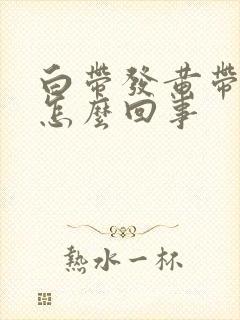 白帶發黃帶
怎麼回事
熱水一杯